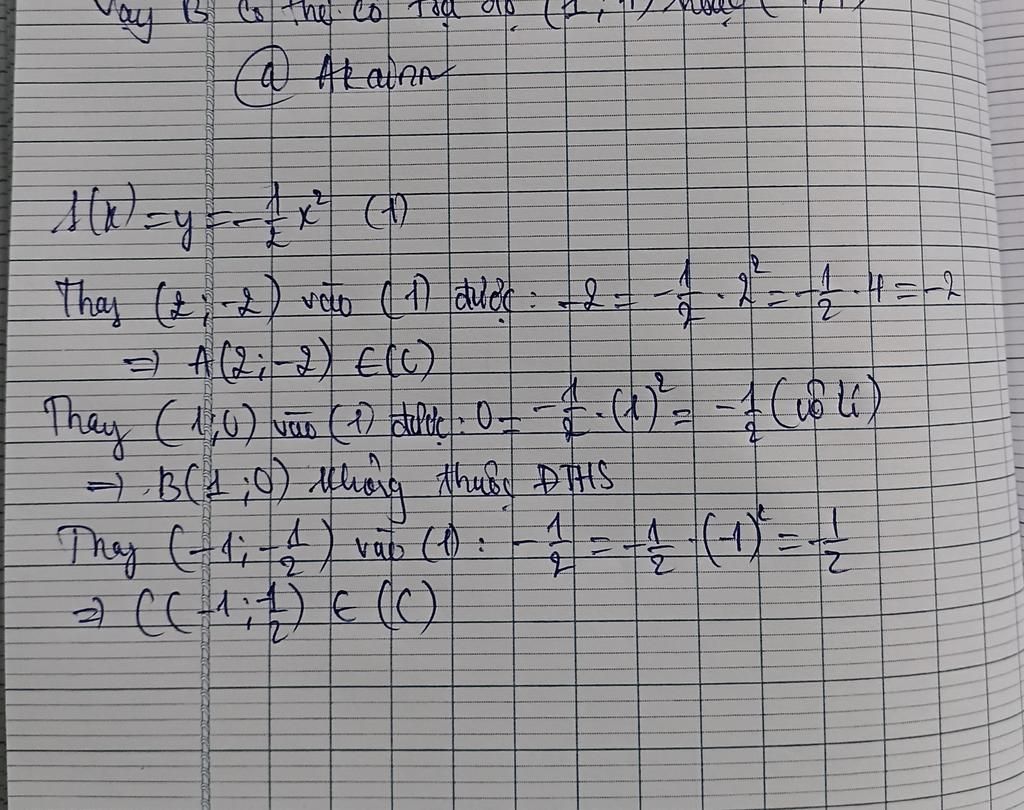 Vậy B có thể có tọa độ (1; 1) hoặc
@ Akainn
f(x) = y = -1/2 x² (1)
Thay (2; -2) vào (1) được: -2 = -1/2 . 2² = -1/2 . 4 = -2
=> A(2; -2) ∈ (C)
Thay (1; 0) vào (1) được: 0 = -1/2 . (1)² = -1/2 (vô lí)
=> B(1; 0) không thuộc ĐTHS
Thay (-1; -1/2) vào (1): -1/2 = -1/2 . (-1)² = -1/2
=> C(-1; -1/2) ∈ (C)